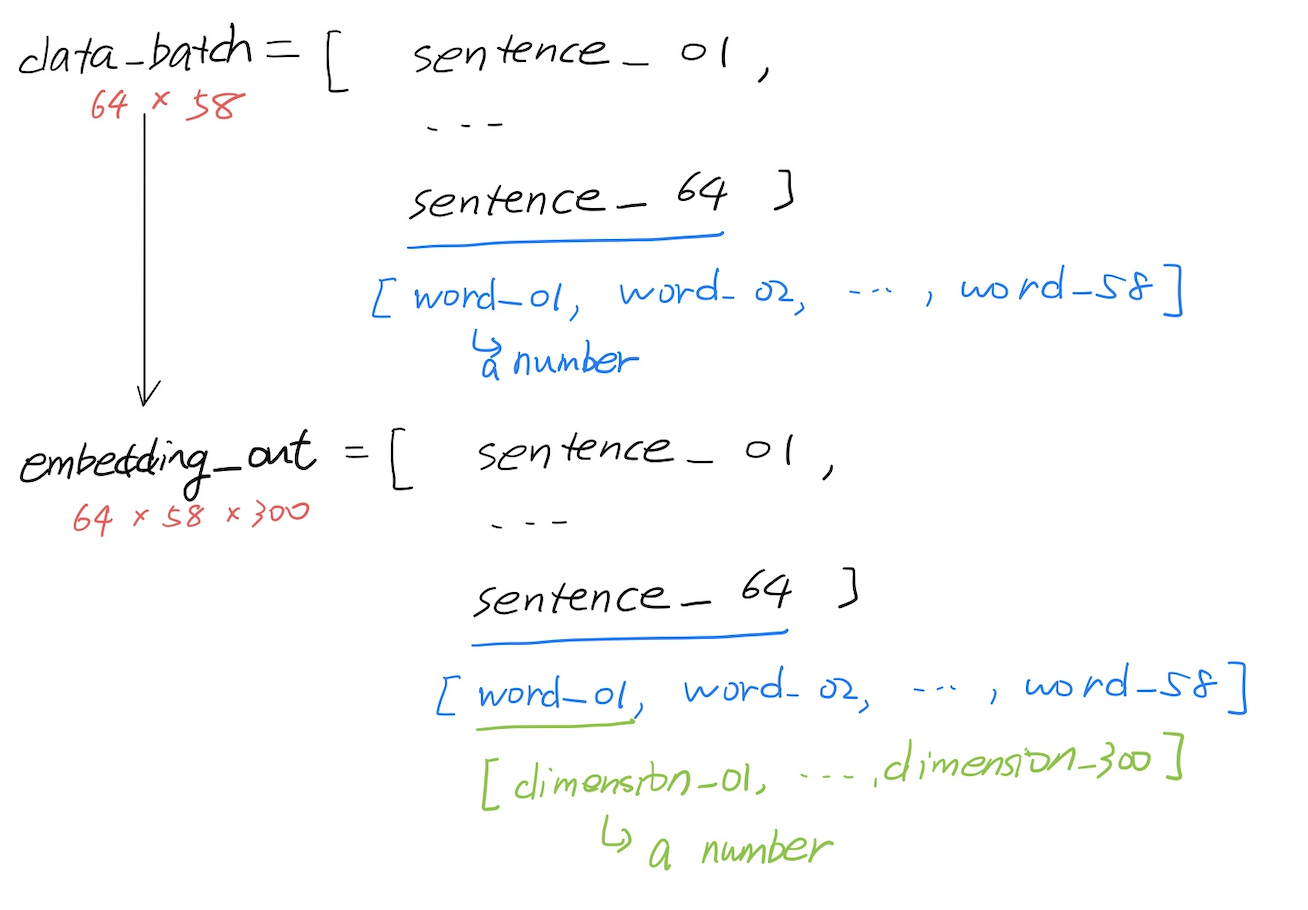 data_batch = [ sentence_01,
64 × 58
...
sentence_64 ]
[ word_01, word_02, ..., word_58 ]
↳ a number
embedding_out = [ sentence_01,
64 × 58 × 300
...
sentence_64 ]
[ word_01, word_02, ..., word_58 ]
[ dimension_01, ...., dimension_300 ]
↳ a number